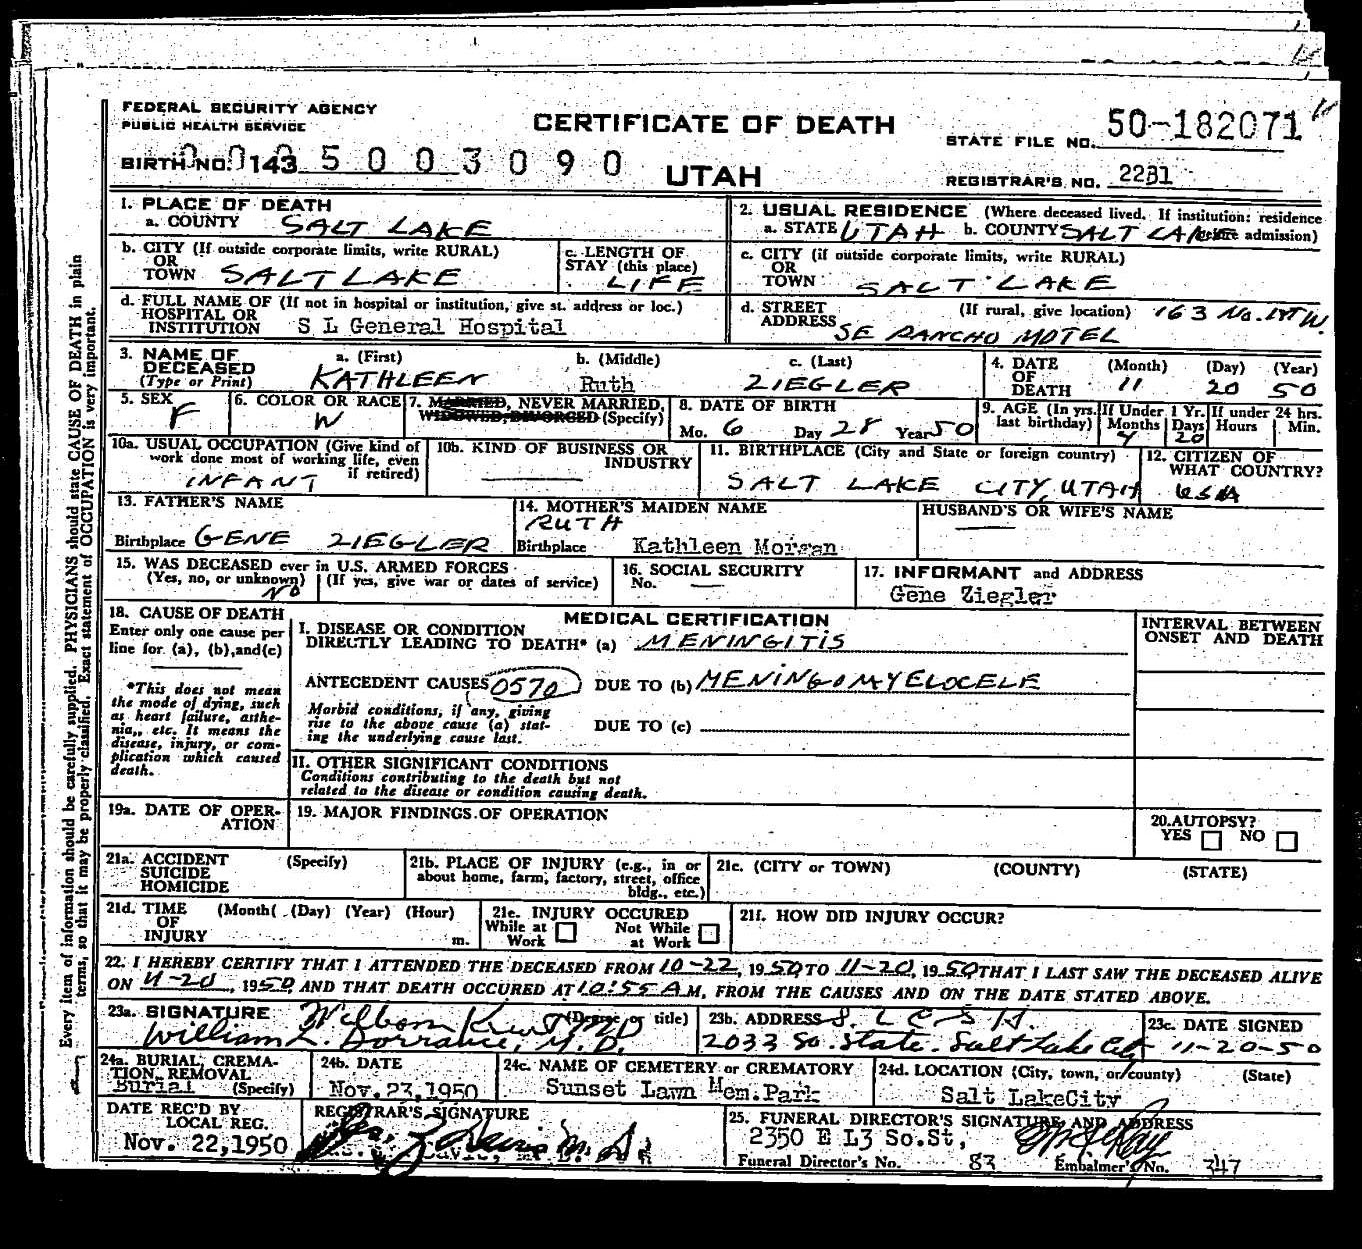 FEDERAL SECURITY AGENCY
PUBLIC HEALTH SERVICE
CERTIFICATE OF DEATH
STATE FILE NO. 50-182071
BIRTH NO. 143 5 0 0 3 0 9 0
UTAH
REGISTRAR'S NO. 2231
1. PLACE OF DEATH
a. COUNTY SALT LAKE
2. USUAL RESIDENCE (Where deceased lived. If institution: residence
a. STATE UTAH b. COUNTY SALT LAKE before admission)
b. CITY (If outside corporate limits, write RURAL)
OR
TOWN SALT LAKE
c. LENGTH OF
STAY (this place)
LIFE
c. CITY (if outside corporate limits, write RURAL)
OR
TOWN SALT LAKE
d. FULL NAME OF (If not in hospital or institution, give st. address or loc.)
HOSPITAL OR
INSTITUTION S L General Hospital
d. STREET (If rural, give location) 163 No. 1st W.
ADDRESS SE RANCHO MOTEL
3. NAME OF
DECEASED
(Type or Print)
a. (First) b. (Middle) c. (Last)
KATHLEEN Ruth ZIEGLER
4. DATE (Month) (Day) (Year)
OF
DEATH 11 20 50
5. SEX
F
6. COLOR OR RACE
W
7. MARRIED, NEVER MARRIED,
WIDOWED, DIVORCED (Specify)
8. DATE OF BIRTH
Mo. 6 Day 28 Year 50
9. AGE (In yrs.
last birthday)
If Under 1 Yr.
Months Days
4 20
If under 24 hrs.
Hours Min.
10a. USUAL OCCUPATION (Give kind of
work done most of working life, even
if retired)
INFANT
10b. KIND OF BUSINESS OR
INDUSTRY
11. BIRTHPLACE (City and State or foreign country)
SALT LAKE CITY, UTAH
12. CITIZEN OF
WHAT COUNTRY?
USA
13. FATHER'S NAME
Birthplace GENE ZIEGLER
14. MOTHER'S MAIDEN NAME
RUTH
Birthplace Kathleen Morgan
HUSBAND'S OR WIFE'S NAME
15. WAS DECEASED ever in U.S. ARMED FORCES
(Yes, no, or unknown) (If yes, give war or dates of service)
NO
16. SOCIAL SECURITY
No.
17. INFORMANT and ADDRESS
Gene Ziegler
18. CAUSE OF DEATH
Enter only one cause per
line for (a), (b), and (c)
*This does not mean
the mode of dying, such
as heart failure, asthe-
nia,, etc. It means the
disease, injury, or com-
plication which caused
death.
MEDICAL CERTIFICATION
I. DISEASE OR CONDITION
DIRECTLY LEADING TO DEATH* (a) MENINGITIS
ANTECEDENT CAUSES 0570 DUE TO (b) MENINGOMYELOCELE
Morbid conditions, if any, giving
rise to the above cause (a) stat-
ing the underlying cause last.
DUE TO (c)
II. OTHER SIGNIFICANT CONDITIONS
Conditions contributing to the death but not
related to the disease or condition causing death.
INTERVAL BETWEEN
ONSET AND DEATH
19a. DATE OF OPER-
ATION
19. MAJOR FINDINGS OF OPERATION
20. AUTOPSY?
YES NO
21a. ACCIDENT (Specify)
SUICIDE
HOMICIDE
21b. PLACE OF INJURY (e.g., in or
about home, farm, factory, street, office
bldg., etc.)
21c. (CITY or TOWN) (COUNTY) (STATE)
21d. TIME (Month( (Day) (Year) (Hour)
OF
INJURY m.
21e. INJURY OCCURED
While at Not While
Work at Work
21f. HOW DID INJURY OCCUR?
22. I HEREBY CERTIFY THAT I ATTENDED THE DECEASED FROM 10-22, 1950 TO 11-20, 1950 THAT I LAST SAW THE DECEASED ALIVE
ON 11-20, 1950, AND THAT DEATH OCCURED AT 10:55 A M, FROM THE CAUSES AND ON THE DATE STATED ABOVE.
23a. SIGNATURE (Degree or title) MD
William L. Dorrance, M.D.
23b. ADDRESS S. L C S H.
2033 So. State. Salt Lake City
23c. DATE SIGNED
11-20-50
24a. BURIAL, CREMA-
TION, REMOVAL
Burial (Specify)
24b. DATE
Nov. 23, 1950
24c. NAME OF CEMETERY or CREMATORY
Sunset Lawn Mem. Park
24d. LOCATION (City, town, or county) (State)
Salt LakeCity
DATE REC'D BY
LOCAL REG.
Nov. 22, 1950
REGISTRAR'S SIGNATURE
25. FUNERAL DIRECTOR'S SIGNATURE AND ADDRESS
2350 E L3 So.St,
Funeral Director's No. 83 Embalmer's No. 347
Every item of information should be carefully supplied. PHYSICIANS should state CAUSE OF DEATH in plain
terms, so that it may be properly classified. Exact statement of OCCUPATION is very important.